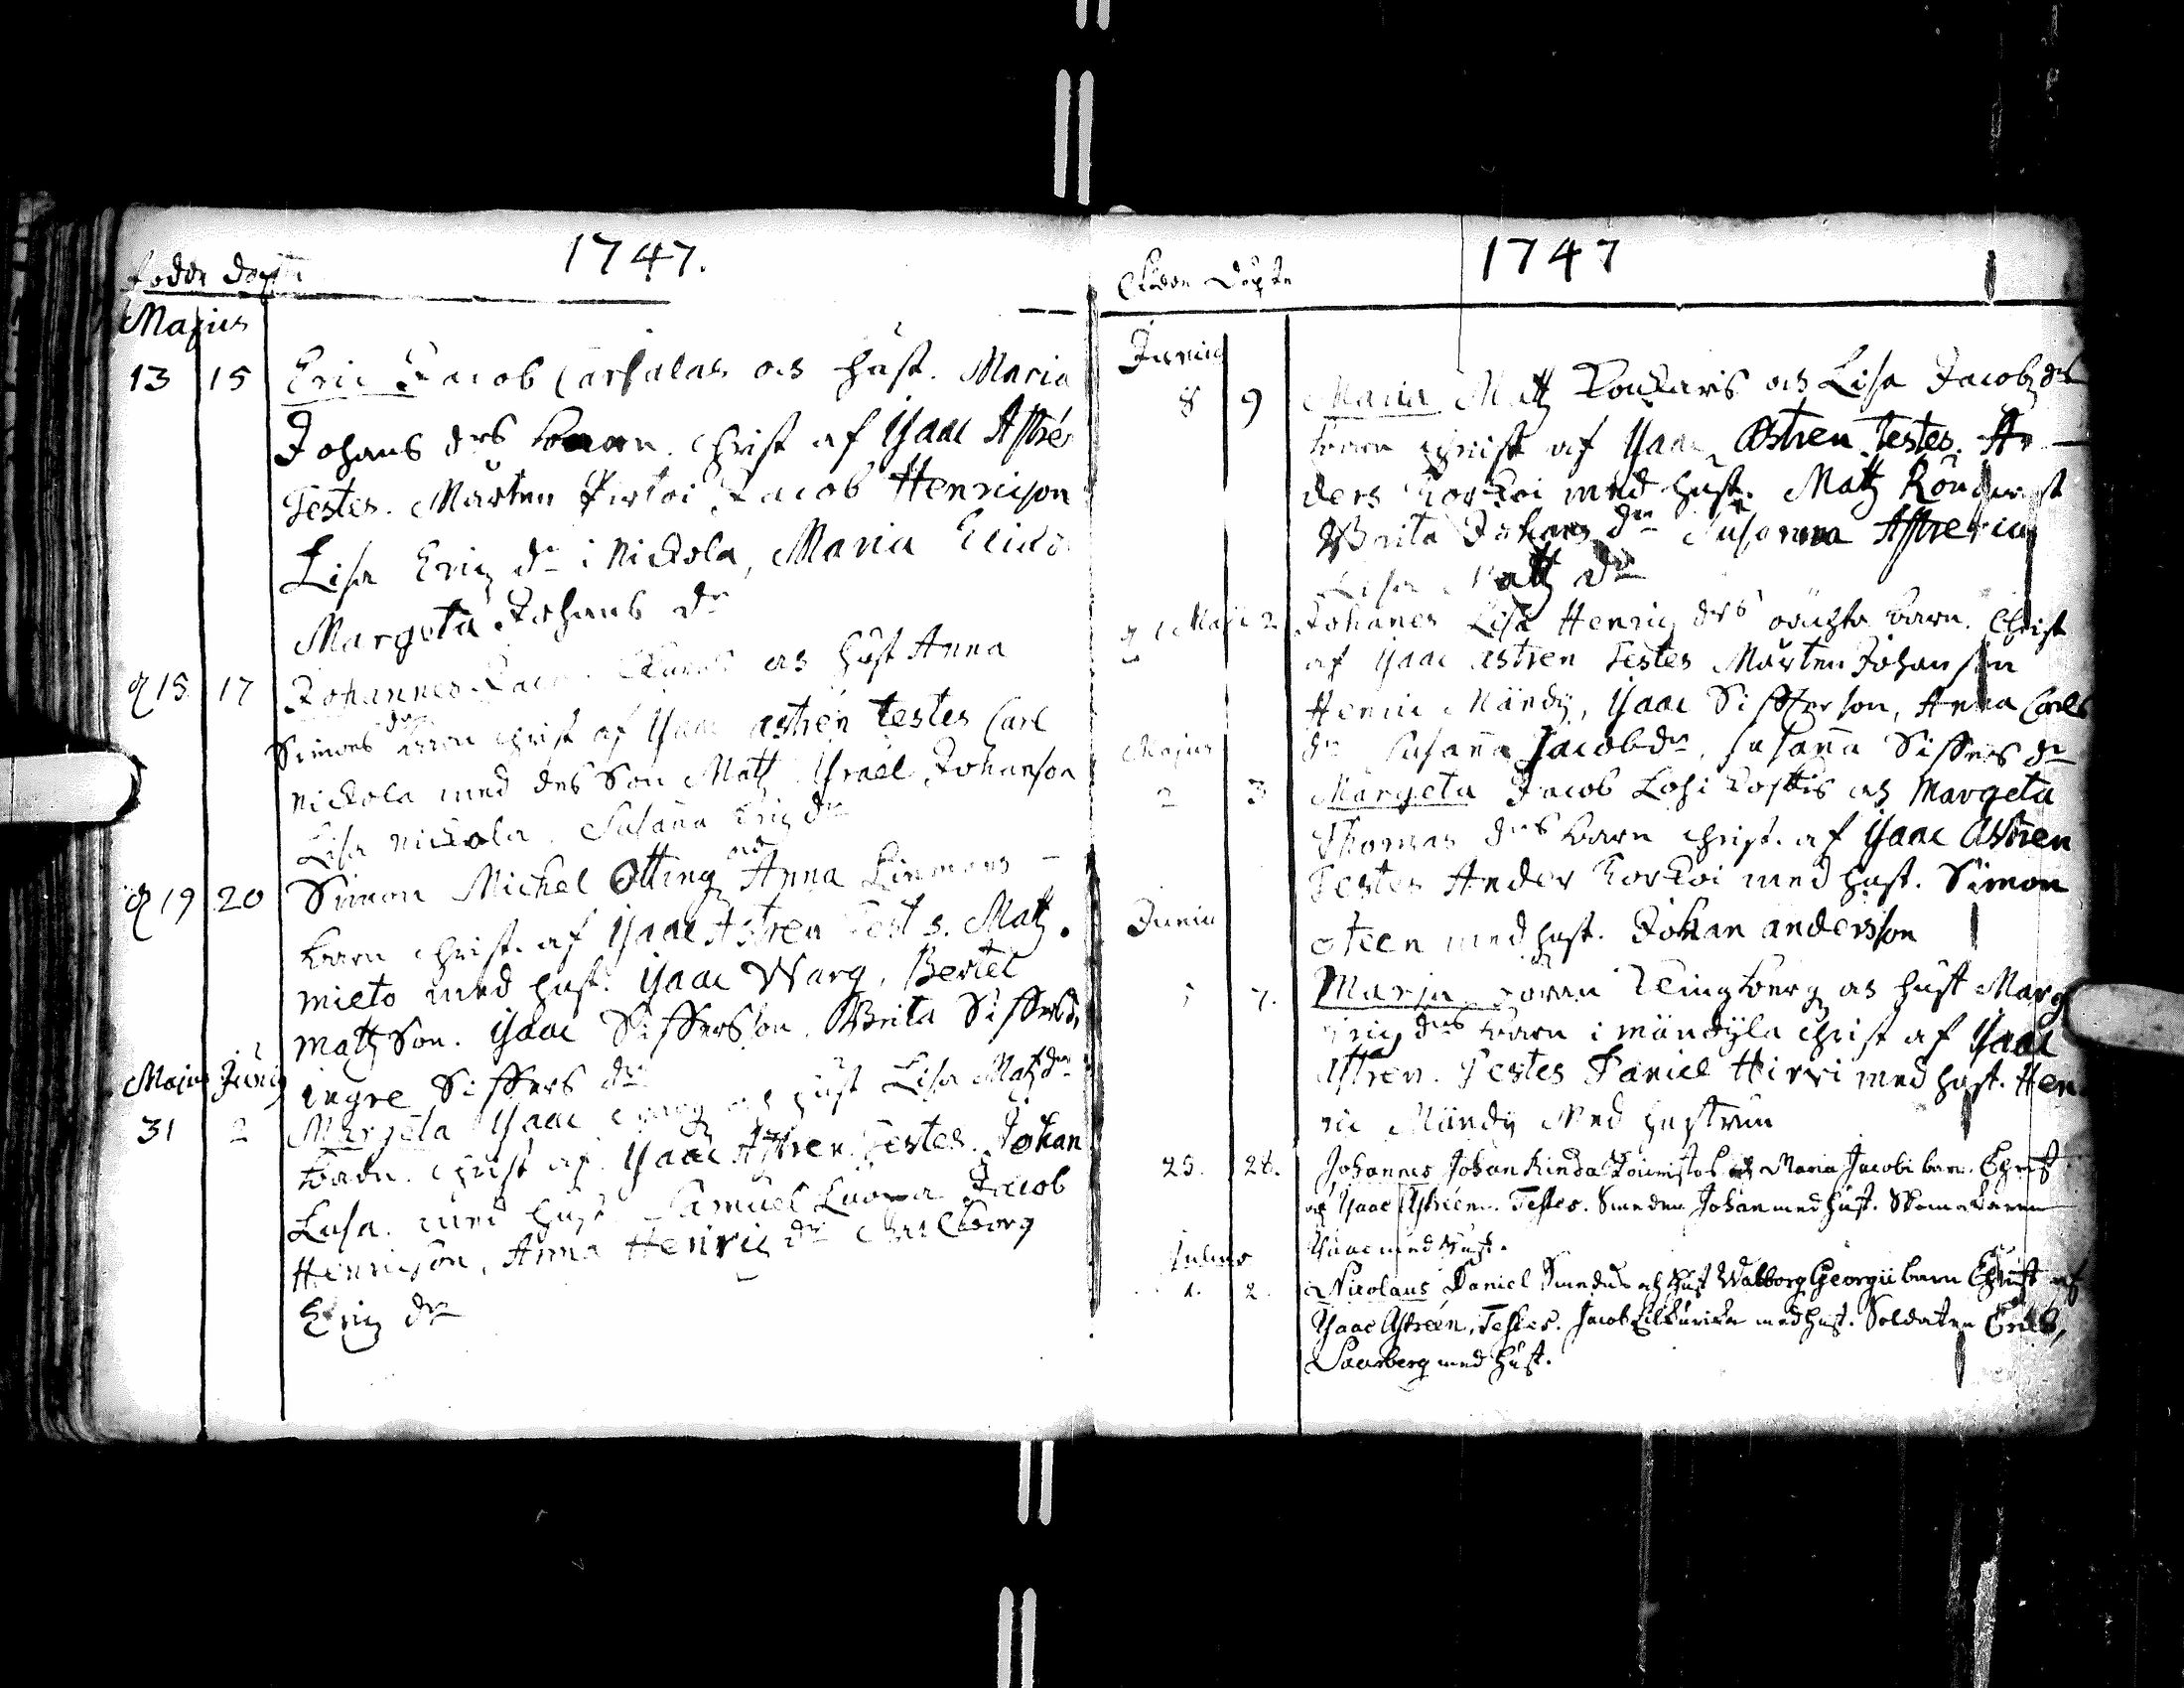 1747.
Födde Döpte
Majus
13 15 Eric Jacob Carsalas och hust. Maria
Johans drs barn. Christ af Isaac Astré
Testes. Mårten Pirtoi Jacob Henricson
Lisa Erics dr i Nickola, Maria
Margeta Johans dr
d 15 17 Johannes och hust Anna
Simons drs barn christ af Isaac astren testes Carl
nickola med des Son Matz Israel Johanson
Lisa nickola. Susanna Erics dr
d 19 20 Simon Michel Otting och Anna Linmans
barn christ. af Isaac Astren Testes. Matz.
mieto med hust. Isaac Warg, Bertel
matz Son. Isaac Sifferson. Brita Siffers dr
ingre Siffers dr
Majus Junij
31 2 Margeta Isaac och hust Lisa Matz dr
barn. christ af Isaac Astren. Testes. Johan
Lusa. med hust Samuel Jacob
Henricson, Anna Henrics dr Walborg
Erics dr
1747
Födde Döpte
Junius
8 9 Maria Matz och Lisa Jacobs drs
barn christ af Isaac Astren Testes. An
ders Korkoi med hust. Matz
Brita Johans dr Susanna Astrenia
Lisa Matz dr
d 1 Maji 2 Johanes Lisa Henrics drs oächta barn. Christ
af Isaac astren Testes Mårten Johanson
Henric Mändy, Isaac Sifferson, Anna Carls
dr Susanna Jacobs dr, Susanna Siffers dr
Majus
2 3 Margeta Jacob och Margeta
Thomas drs barn christ. af Isaac Astren
Testes Ander Korkoi med hust. Simon
oteen med hust. Johan andersson
Junius
7. Maria och hust Marg
Erics drs barn i mändyla christ af Isaac
Astren. Testes Daniel Hirvi med hust. Hen
ric Mändy Med hustrun
25. 28. Johannes Johan och Maria Jacobi barn. Christ
af Isaac Astreen. Testes. Smeden Johan med hust. Skomakaren
Isaac med hust.
Julius
1. 2. Nicolaus Daniel Smedus och hust Walborg Georgii barn Christ af
Isaac Astreen, Testes. Jacob med hust. Soldaten Eric
Saarberg med hust.